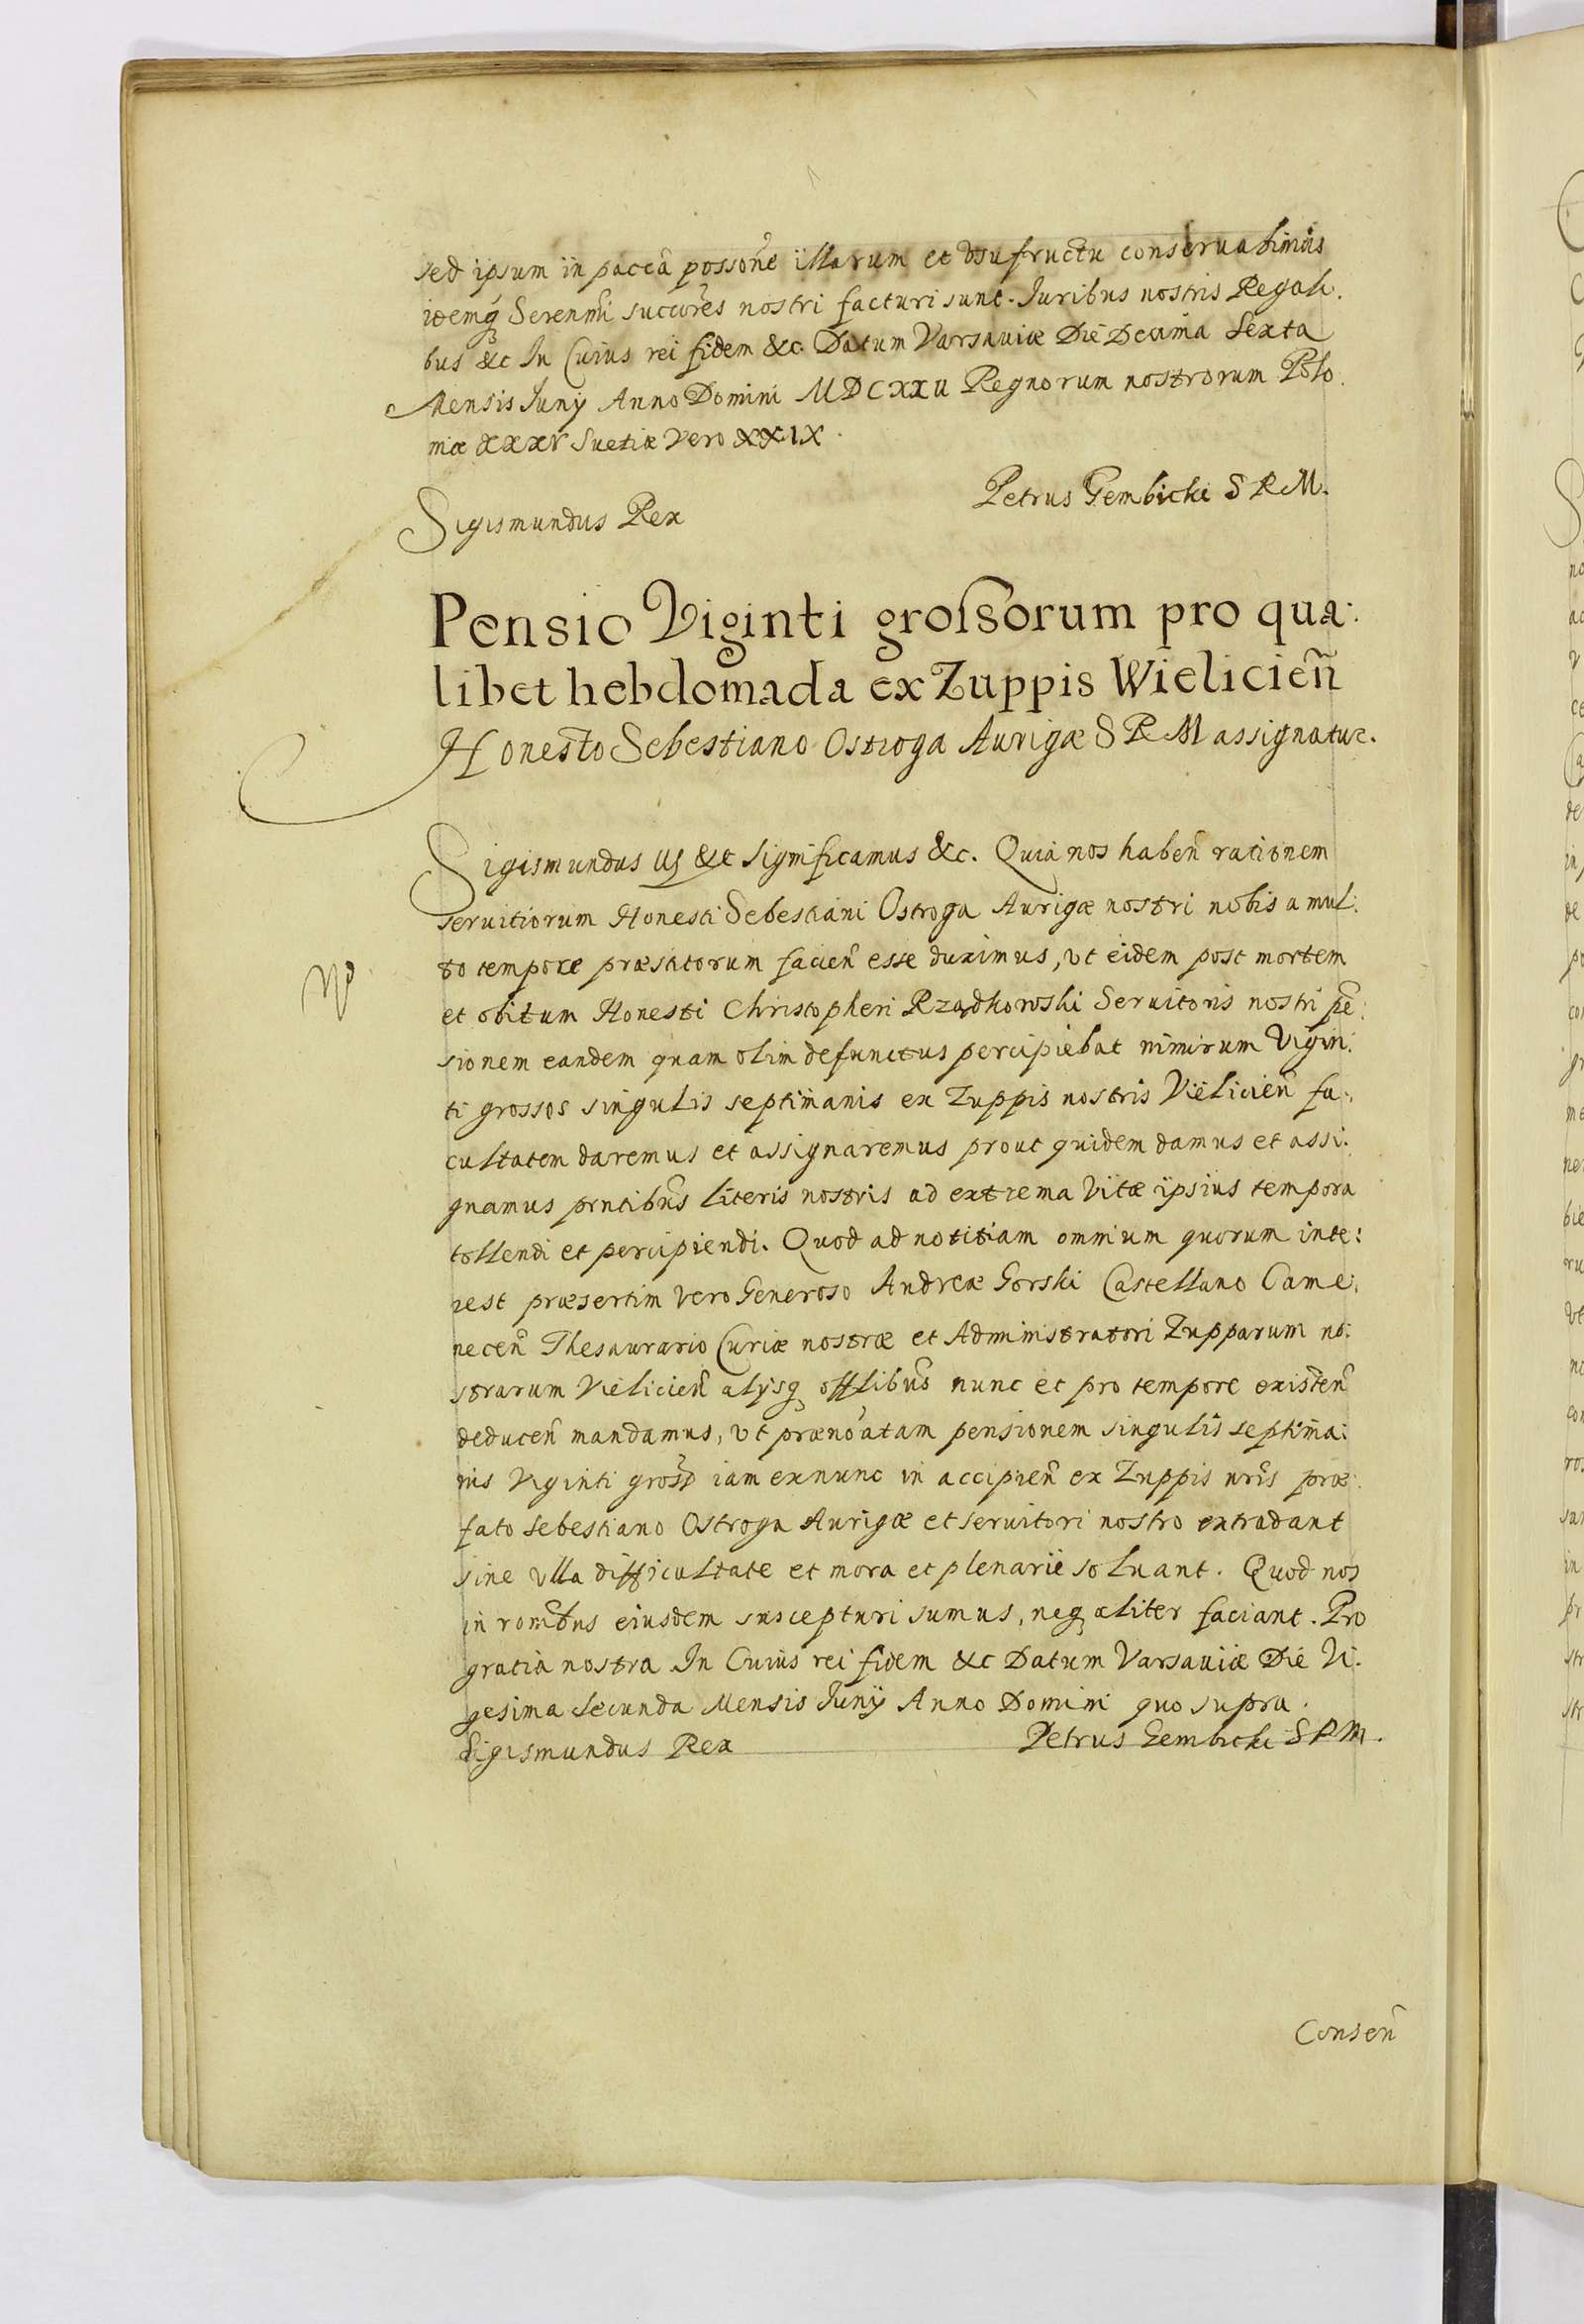 sed ipsum in paccā possone illarum et vsufructu conseruabimus
idemq Serenmi succores nostri facturi sunt. Iuribus nostris Regali.
bus &c In Cuius rei fidem &c. Datum Varsauiæ Die Decima Sexta
Mensis Iunij Anno Domini MDCXXII Regnorum nostrorum Polo.
niæ XXXV Suetiæ Vero XXIX.
Petrus Gembicki S R M.
Sigismundus Rex
Pensio Viginti groſsorum pro qua:
libet hebdomada ex Zuppis Wielicien̄
Honesto Sebestiano Ostroga Aurigæ S R M assignatur.
Sigismundus III &c Significamus &c. Quia nos haben̄ rationem
seruitiorum Honesti Sebestiani Ostroga Aurigæ nostri nobis a mul:
to tempore præstitorum facien̄ esse duximus, vt eidem post mortem
et obitum Honesti Christopheri Rządkowski Seruitoris nostri pē:
sionem eandem quam olim defunctus percipiebat nimirum Vigin:
ti grossos singulis septimanis ex Zuppis nostris Vielicien̄ fa:
cultatem daremus et assignaremus prout quidem damus et assi:
gnamus prntibus literis nostris ad extrema Vitæ ipsius tempora
tollendi et percipiendi. Quod ad notitiam omnium quorum inte:
rest præsertim vero Generoso Andreæ Gorski Castellano Came:
necen̄ Thesaurario Curiæ nostræ et Administratori Zupparum no:
strarum Vielicien̄ alijsq offlibus nunc et pro tempore existen̄
deducen̄ mandamus, vt prænoatam pensionem singulis septima:
nis Viginti gross iam exnunc in accipien̄ ex Zuppis nris præ:
fato Sebestiano Ostroga Aurigæ et seruitori nostro extradant
sine vlla difficultate et mora et plenarie soluant. Quod nos
in ronibus eiusdem suscepturi sumus, neq aliter faciant. Pro
gratia nostra In Cuius rei fidem &c Datum Varsauiæ Die Vi:
gesima Secunda Mensis Iunij Anno Domini quo supra.
Sigismundus Rex Petrus Gembicki S R M.
Consen̄